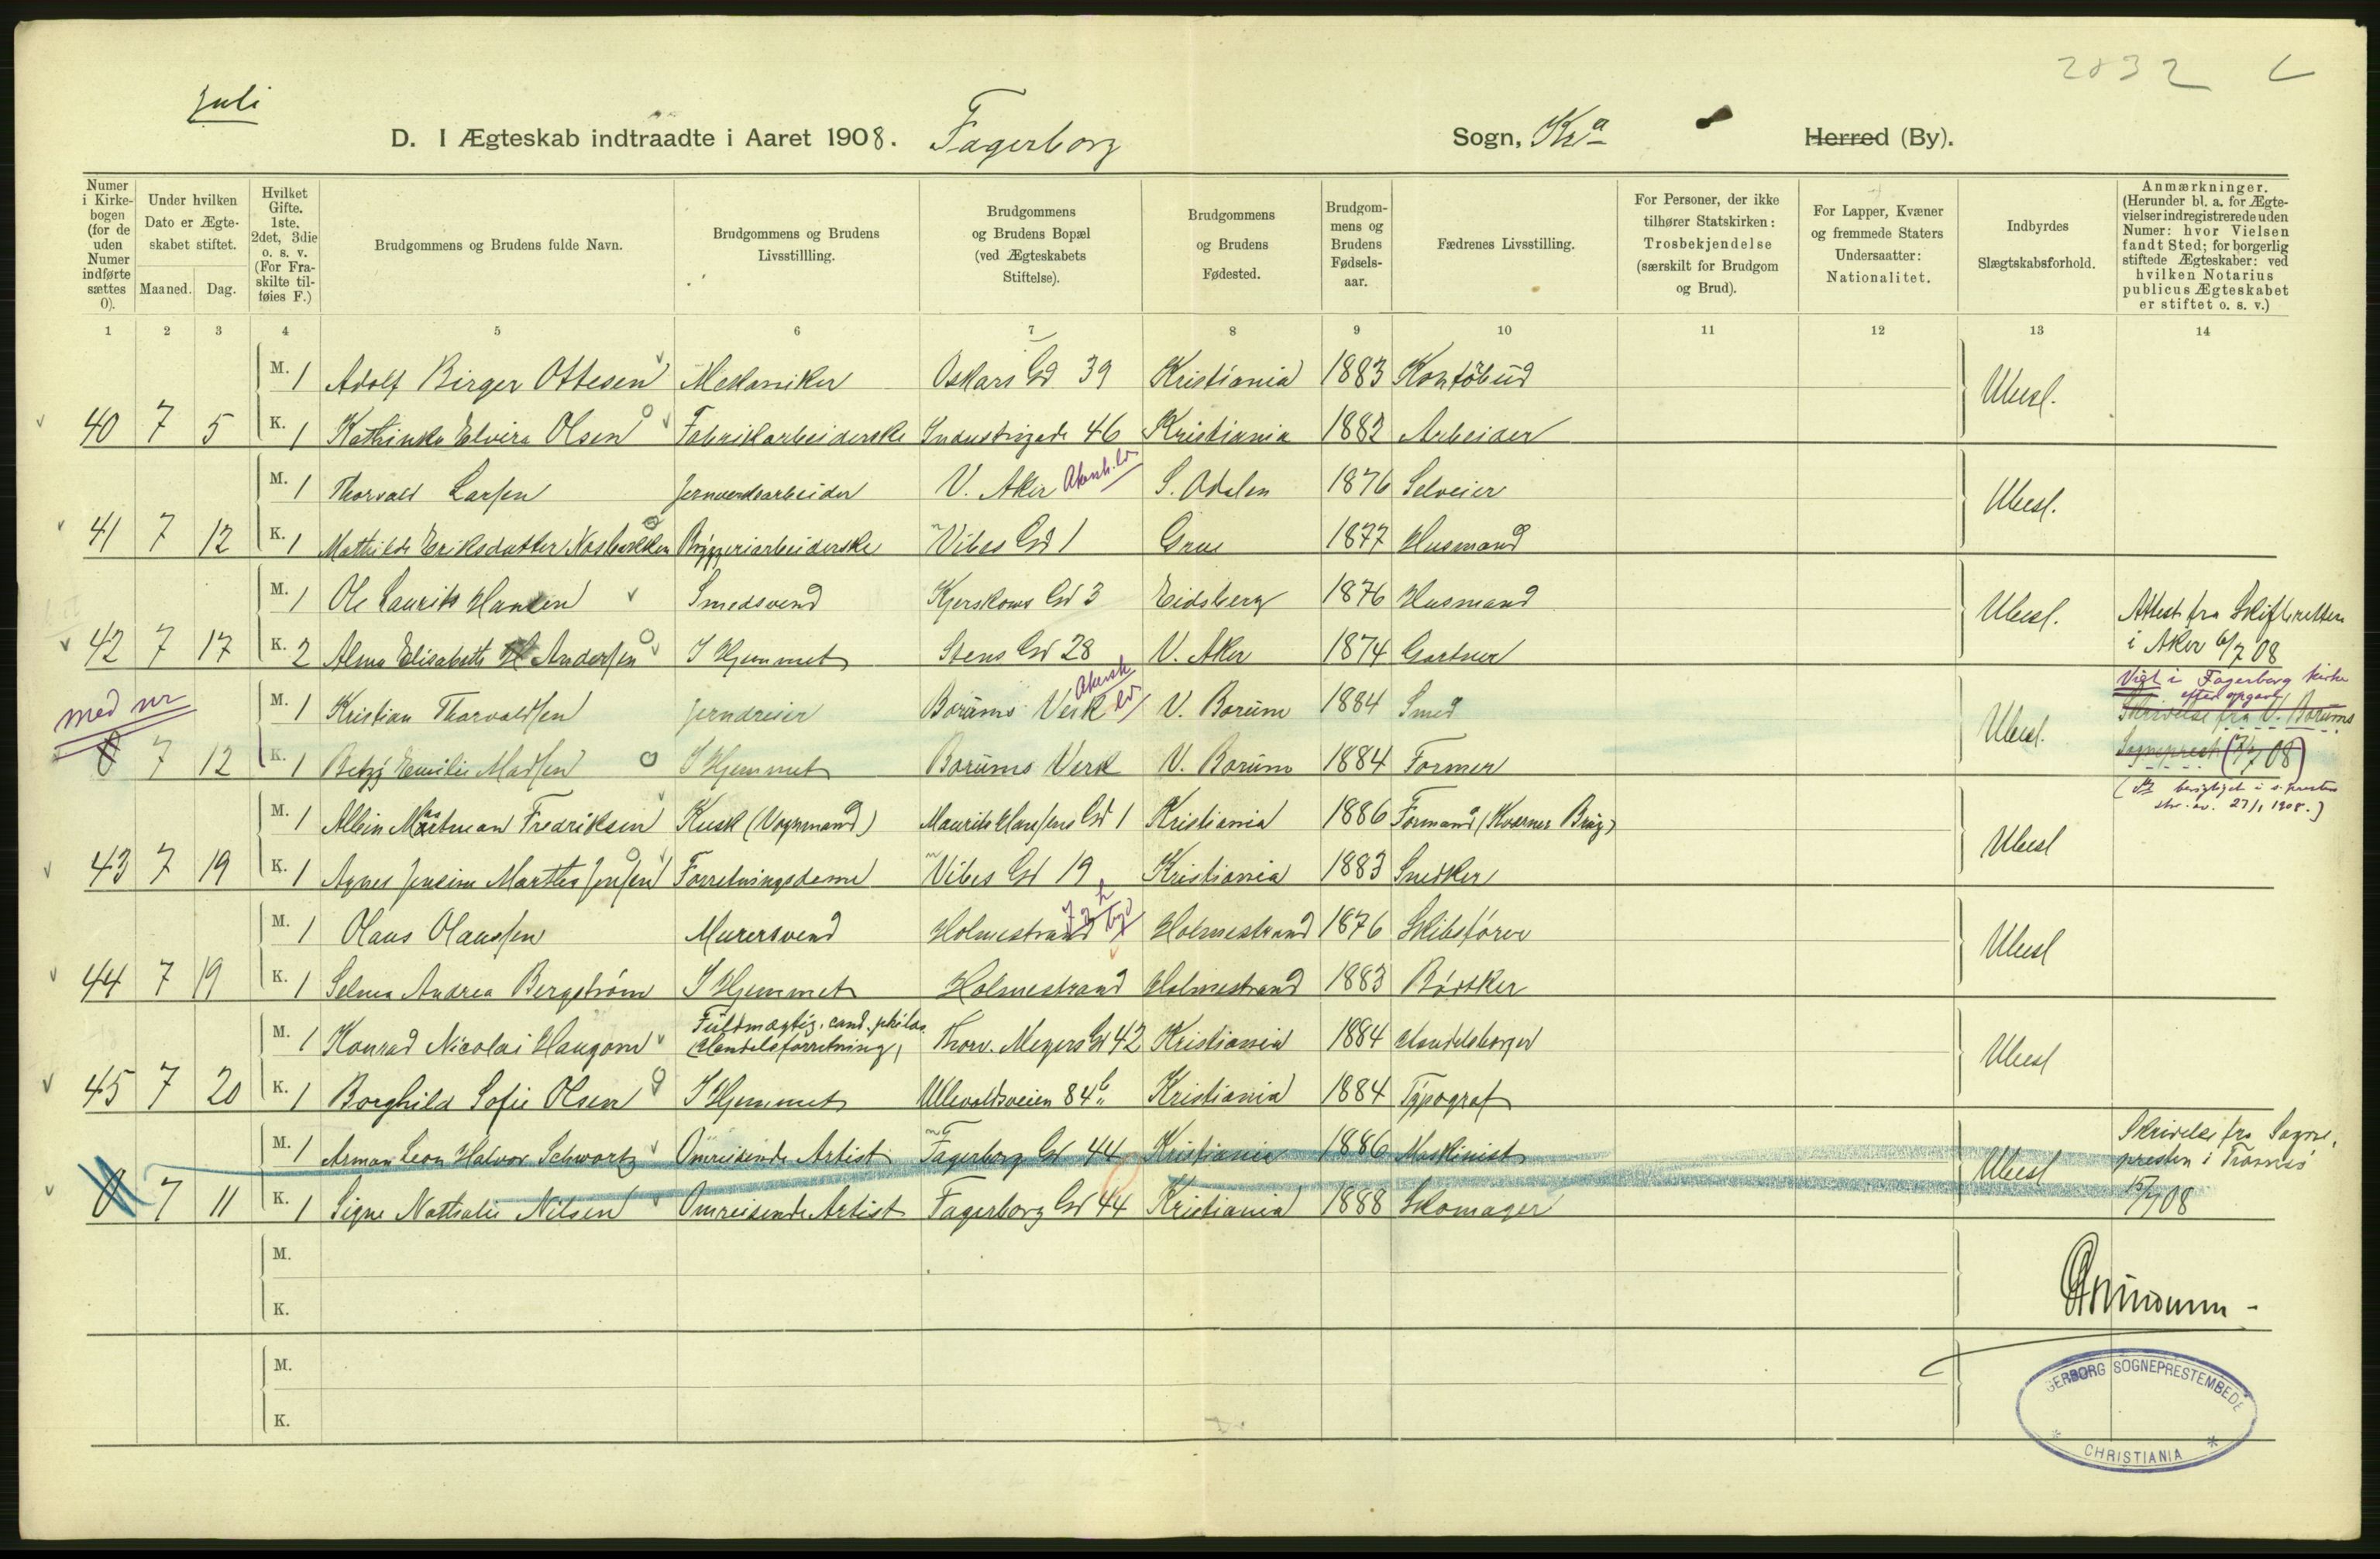 2832
Juli
D. I Ægteskab indtraadte i Aaret 1908. Fagerborg Sogn, Kra Herred (By).
Numer i Kirkebogen (for de uden Numer indførte sættes 0).
Under hvilken Dato er Ægteskabet stiftet.
Maaned. Dag.
Hvilket Gifte. 1ste, 2det, 3die o. s. v. (For Fraskilte tilføies F.)
Brudgommens og Brudens fulde Navn.
Brudgommens og Brudens Livsstillling.
Brudgommens og Brudens Bopæl (ved Ægteskabets Stiftelse).
Brudgommens og Brudens Fødested.
Brudgommens og Brudens Fødselsaar.
Fædrenes Livsstilling.
For Personer, der ikke tilhører Statskirken: Trosbekjendelse (særskilt for Brudgom og Brud).
For Lapper, Kvæner og fremmede Staters Undersaatter: Nationalitet.
Indbyrdes Slægtskabsforhold.
Anmærkninger. (Herunder bl. a. for Ægtevielser indregistrerede uden Numer: hvor Vielsen fandt Sted; for borgerlig stiftede Ægteskaber: ved hvilken Notarius publicus Ægteskabet er stiftet o. s. v.)
1 2 3 4 5 6 7 8 9 10 11 12 13 14
M. 1 Adolf Birger Ottesen Mekaniker Oskars Gd 39 Kristiania 1883 Kontorbud Ubesl.
40 7 5 K. 1 Kathinka Elvira Olsen Fabrikarbeiderske Industrigade 46 Kristiania 1882 Arbeider
M. 1 Thorvald Larsen Jernverksarbeider V. Aker S. Odalen 1876 Selveier Ubesl.
41 7 12 K. 1 Mathilde Eriksdatter Bryggeriarbeiderske Vibes Gd 1 Grue 1877 Husmand
M. 1 Ole Laurits Hansen Smedsvend Gd 3 Eidsberg 1876 Husmand Ubesl. Attest fra Skifteretten
42 7 17 K. 2 Alma Elisabeth Andersen I Hjemmet Stens Gd 28 V. Aker 1874 Gartner i Aker 6/7 08
med nr
M. 1 Kristian Thorvaldsen Jerndreier Bærums Verk V. Bærum 1884 Smed Ubesl. Viet i Fagerborg kirke
efter opgave
Skrivelse fra V. Bærums
0 7 12 K. 1 Betzy Emilie Madsen I Hjemmet Bærums Verk V. Bærum 1884 Former Sogneprest
M. 1 Albin Fredriksen Kusk (Vognmand) Maurits Hansens Gd 1 Kristiania 1886 Formand (Kværner Brug) Ubesl
43 7 19 K. 1 Agnes Jensine Marthea Jensen Forretningsdame Vibes Gd 19 Kristiania 1883 Snedker
M. 1 Olaus Olaussen Murersvend Holmestrand Holmestrand 1876 Skibsfører Ubesl
44 7 19 K. 1 Selma Andrea Bergstrøm I Hjemmet Holmestrand Holmestrand 1883 Bødker
M. 1 Konrad Nicolai Haugom Fuldmægtig, cand. philos. (Handelsforretning) Thorv. Meyers Gd 42 Kristiania 1884 Handelsborger Ubesl
45 7 20 K. 1 Borghild Sofie Olsen I Hjemmet Ullevoldsveien 84 b Kristiania 1884 Typograf
M. 1 Arman Leon Halvor Schwartz Omreisende Artist Fagerborg Gd 44 Kristiania 1886 Maskinist Ubesl Skrivelse fra Sogne-
presten i Tromsø
0 7 11 K. 1 Signe Nathalie Nilsen Omreisende Artist Fagerborg Gd 44 Kristiania 1888 Skomager 15/7 08
M.
K.
M.
K.
GERBORG SOGNEPRESTEMBEDE
* CHRISTIANIA *